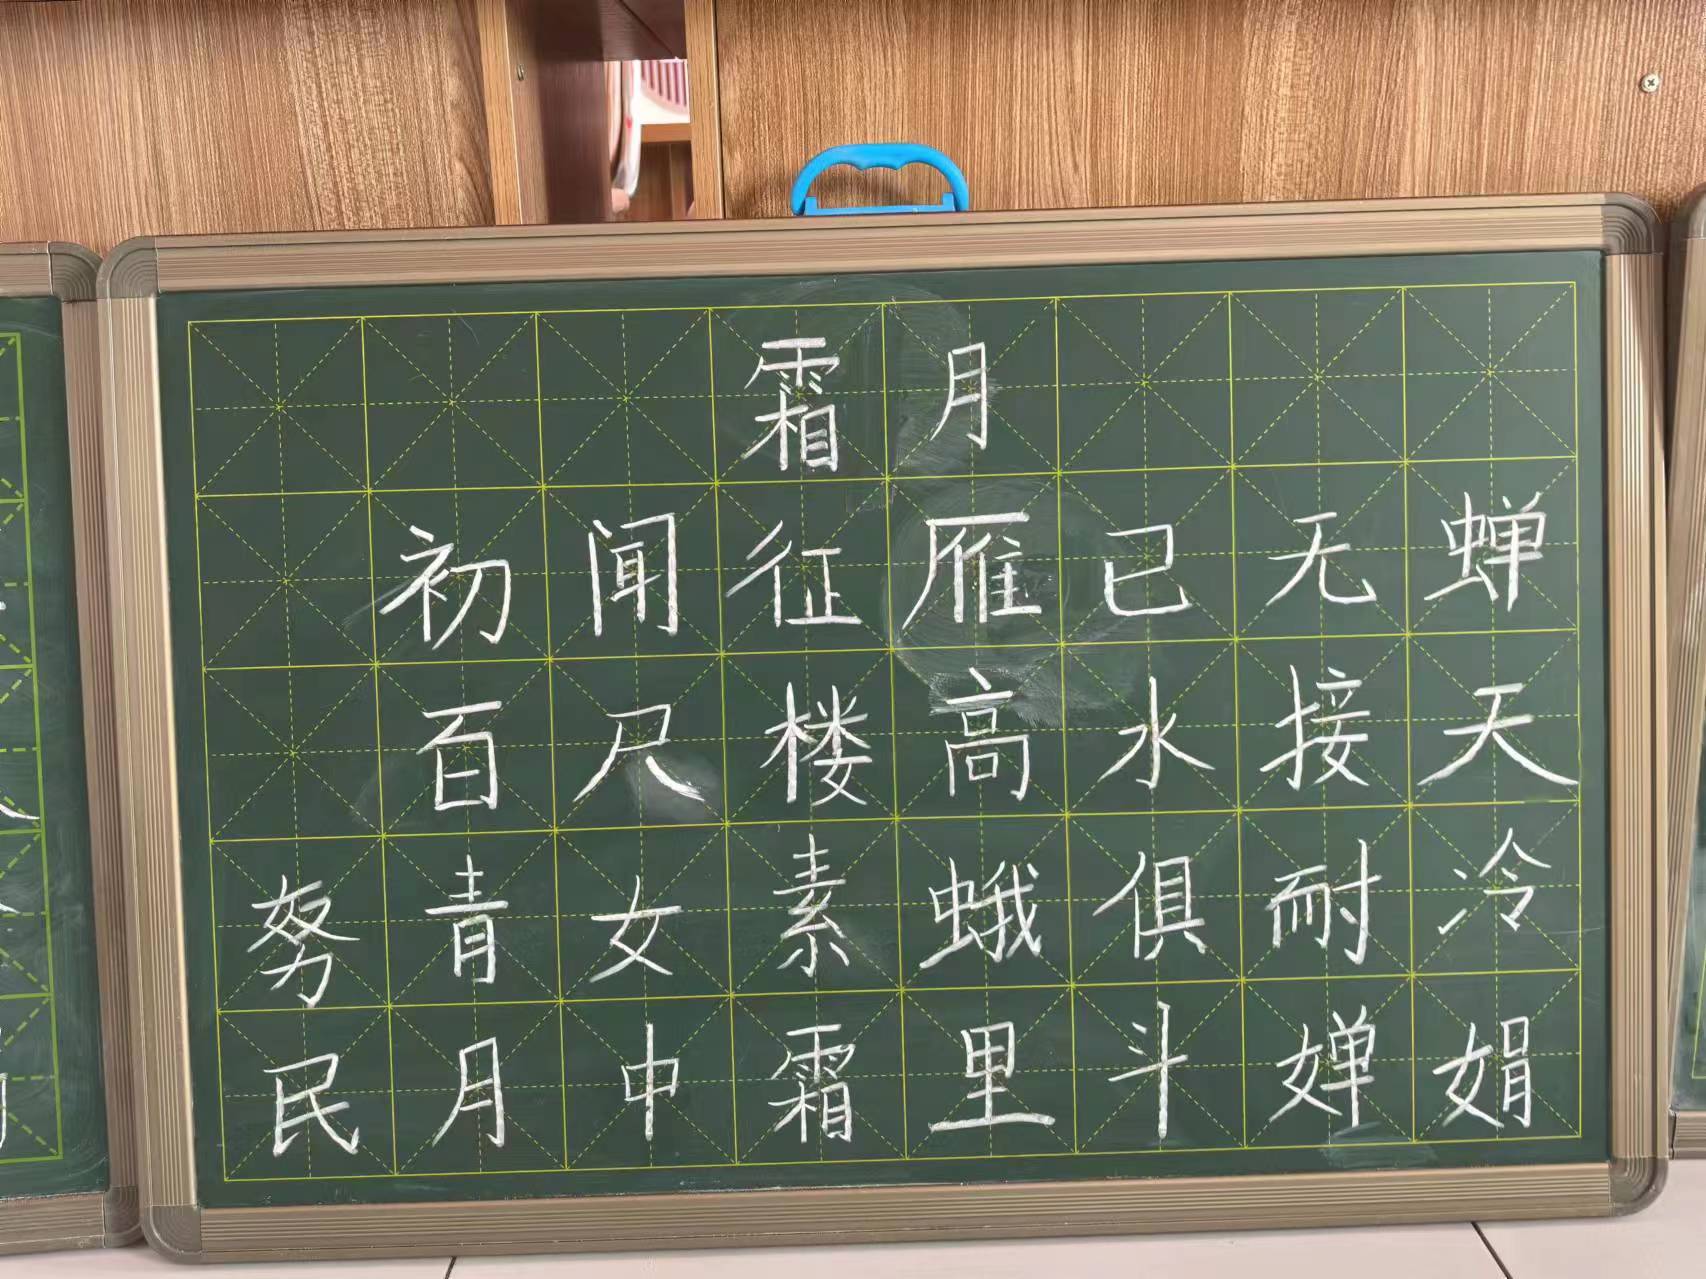 霜月
初闻征雁已无蝉
百尺楼高水接天
努青女素蛾俱耐冷
民月中霜里斗婵娟